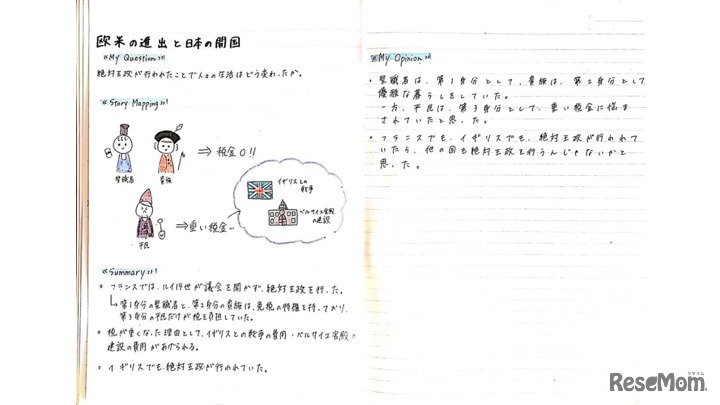 欧米の進出と日本の開国
≪My Question≫
絶対王政が行われたことで人々の生活はどう変わったか。
≪Story Mapping≫
聖職者
貴族
⇒ 税金0!!
平民
⇒重い税金…
イギリスとの
戦争
ベルサイユ宮殿
の建設
≪Summary≫
○ フランスでは、ルイ14世が議会を開かず、絶対王政を行った。
↳第1身分の聖職者と、第2身分の貴族は、免税の特権を持っており、
第3身分の平民だけが税を負担していた。
○ 税が重くなった理由として、イギリスとの戦争の費用・ベルサイユ宮殿の
建設の費用があげられる。
○ イギリスでも、絶対王政が行われていた。
≪My Opinion≫
・聖職者は、第1身分として、貴族は、第2身分として
優雅な暮らしをしていた。
一方、平民は、第3身分として、重い税金に悩ま
されていたと思った。
・フランスでも、イギリスでも、絶対王政が行われて
いたら、他の国も絶対王政を行うんじゃないかと
思った。
リセマム
ReseMom.